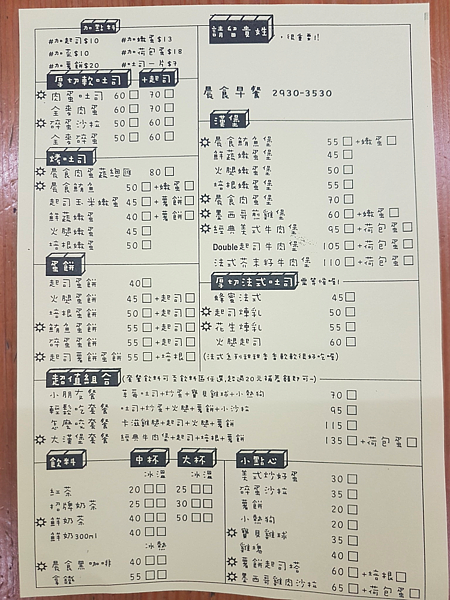 加點料
#加起司$10 #加嫩蛋$13
#加蛋$10 #加荷包蛋$18
#加薯餅$20 #吐司一片$7
請留貴姓
，很重要!
晨食早餐 2930-3530
厚切軟吐司 +起司
肉蛋吐司 60 70
全麥肉蛋 60 70
碎蛋沙拉 50 60
全麥碎蛋 50 60
烤吐司
晨食肉蛋蔬總匯 80
晨食鮪魚 50 +嫩蛋
起司玉米嫩蛋 45 +薯餅
鮮蔬嫩蛋 40 +薯餅
火腿嫩蛋 50
培根嫩蛋 50
蛋餅
起司蛋餅 40
火腿蛋餅 45 +起司
培根蛋餅 50 +起司
鮪魚蛋餅 55 +起司
碎蛋蛋餅 55 +起司
起司薯餅蛋餅 55 +培根
漢堡
晨食鮪魚堡 55 +嫩蛋
鮮蔬嫩蛋堡 45
火腿嫩蛋堡 55
培根嫩蛋堡 55
晨食肉蛋堡 70
墨西哥煎雞堡 60 +嫩蛋
經典美式牛肉堡 95 +荷包蛋
Double起司牛肉堡 105 +荷包蛋
法式芥末籽牛肉堡 110 +荷包蛋
厚切法式吐司
蜂蜜法式 45
起司煉乳 50
花生煉乳 55
火腿起司 60
超值組合
小朋友餐 草莓吐司+炒蛋+寶貝雞球+小熱狗 70
輕鬆吃套餐 吐司+炒蛋+火腿+薯餅+小沙拉 95
怎麼吃套餐 卡滋雞腿+起司+火腿+薯餅 115
大漢堡套餐 經典牛肉堡+起司+培根+薯餅 135 +荷包蛋
飲料 中杯 大杯
冰溫 冰溫
紅茶 20 25
招牌奶茶 25 30
鮮奶茶 40 50
鮮奶300ml 40
冰熱
晨食黑咖啡 40
拿鐵 55
小點心
美式炒好蛋 30
碎蛋沙拉 35
薯餅 20
小熱狗 20
寶貝雞球 35
雞塊 40
薯餅起司塔 60 +培根
墨西哥雞肉沙拉 65 +荷包蛋